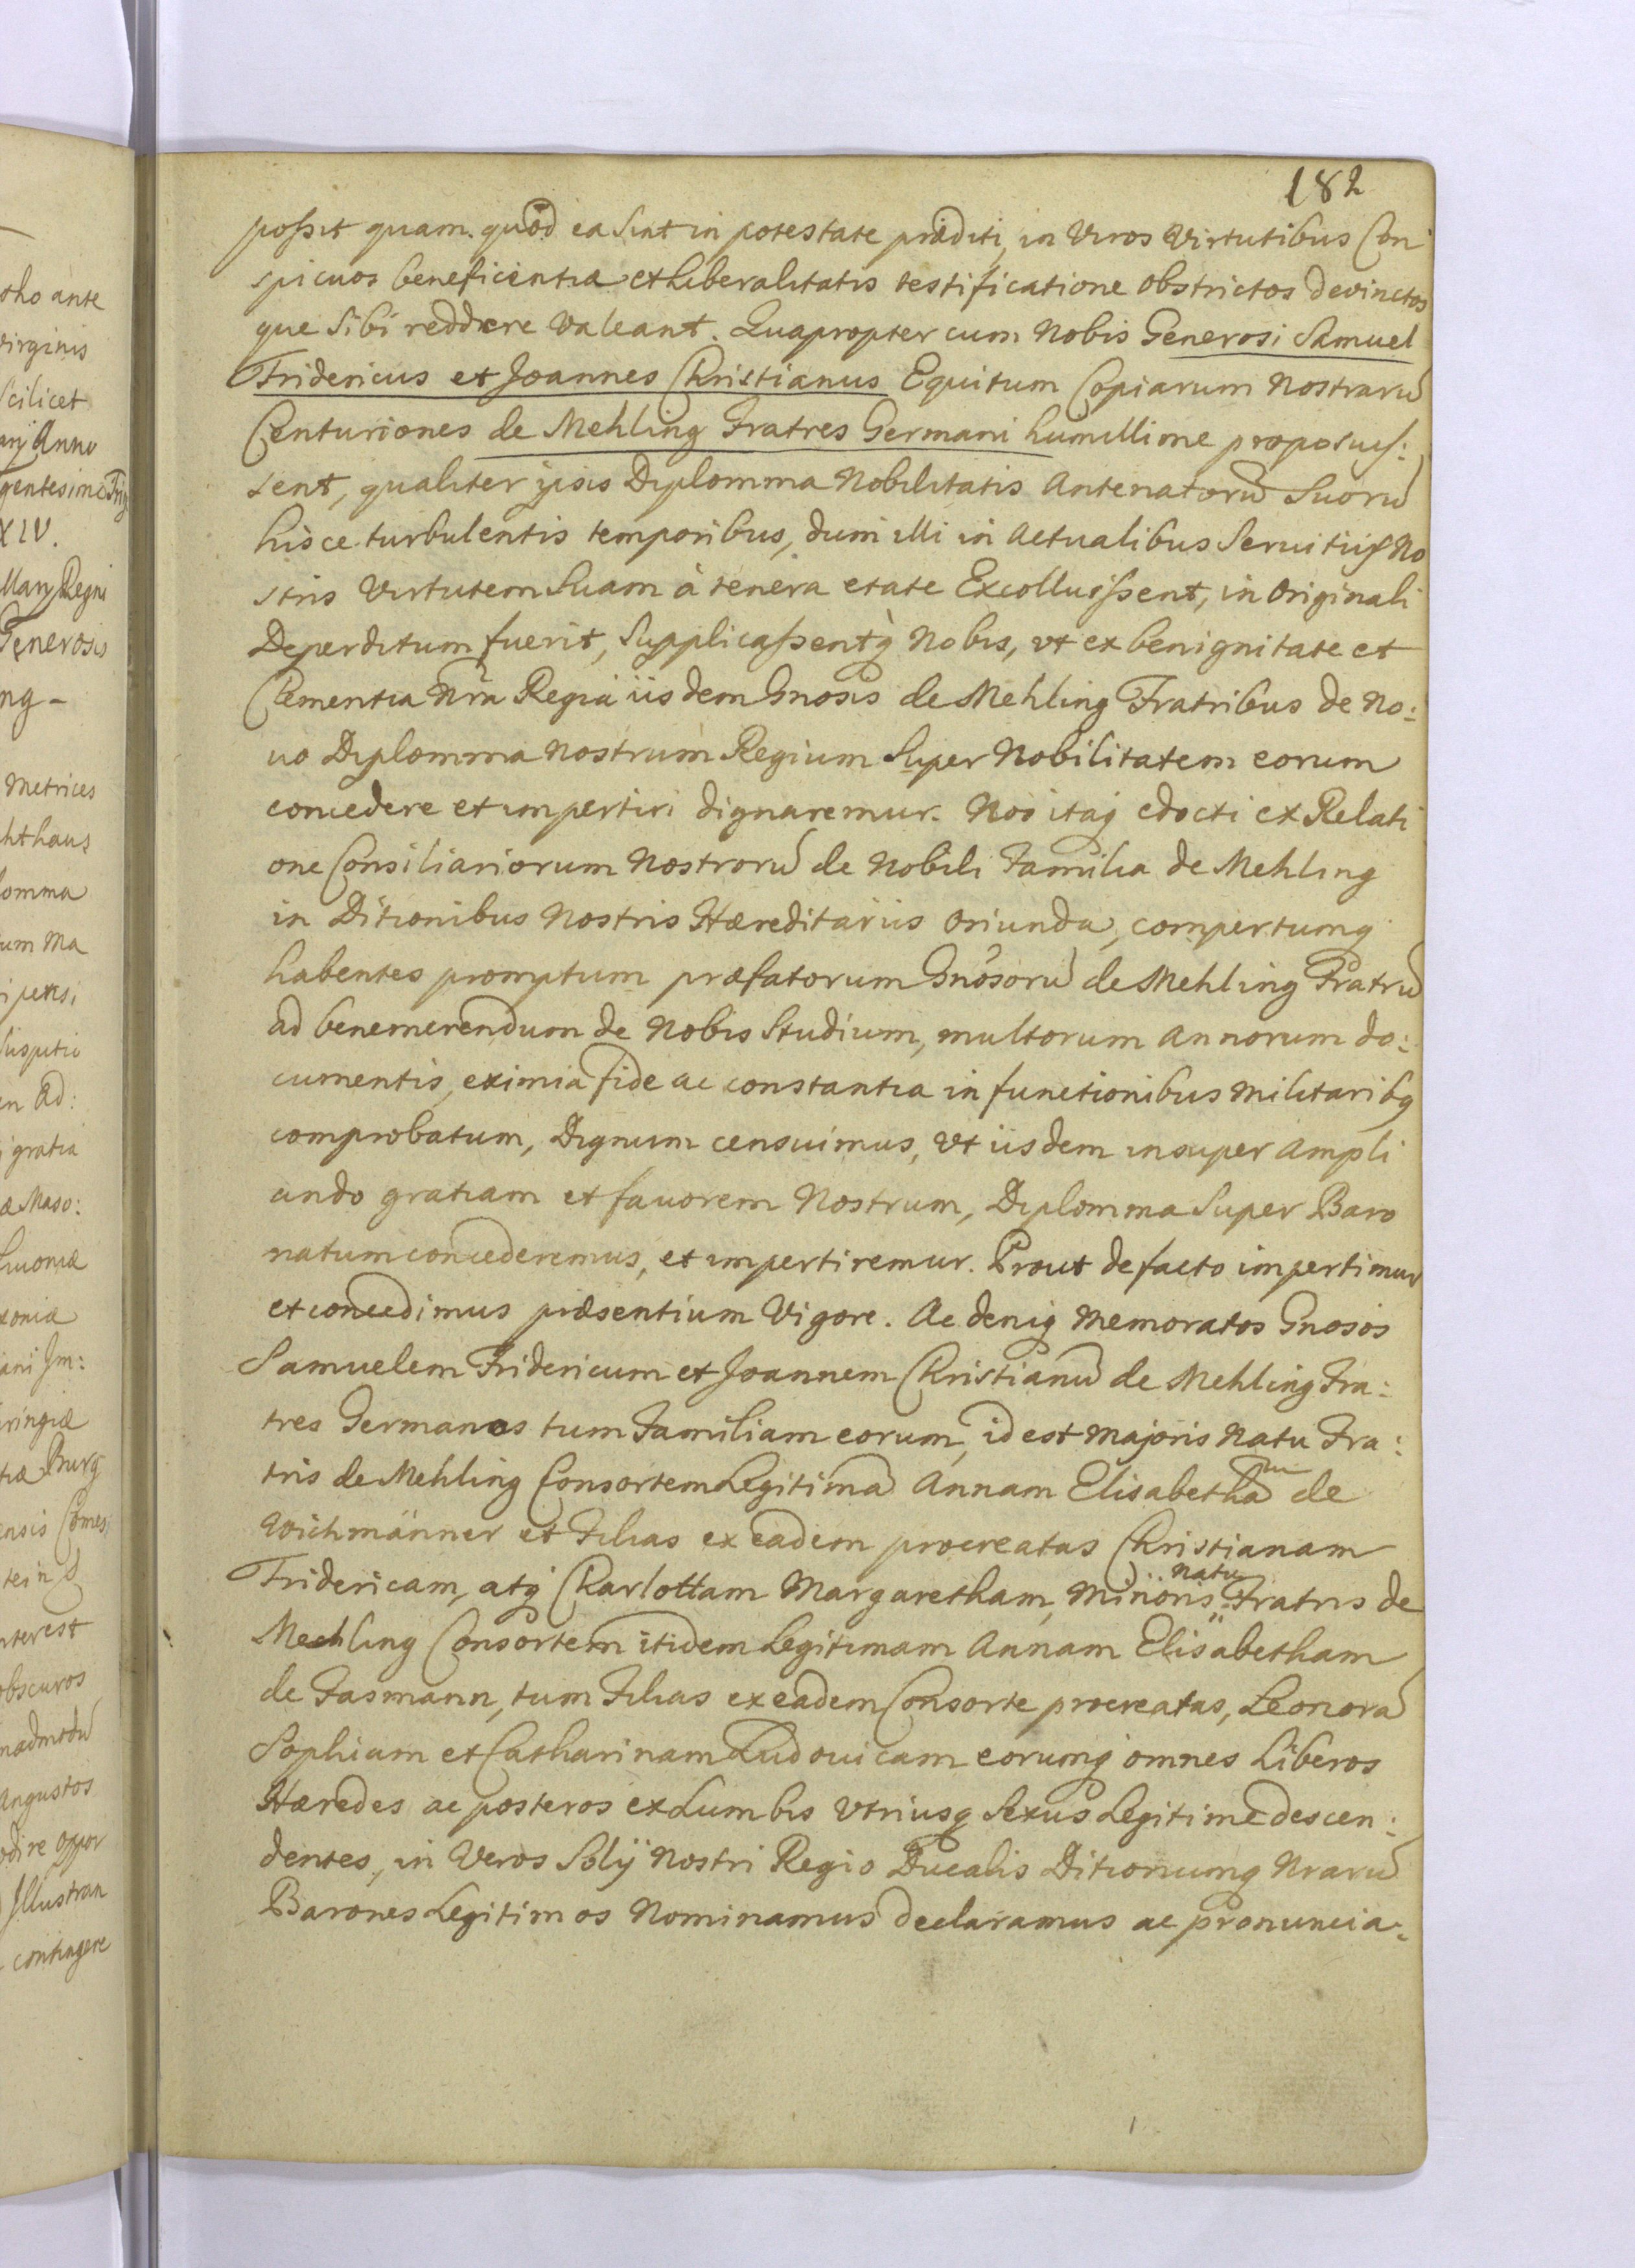 182
possit quam quòd ea sint in potestate præditi, in Viros Virtutibus Con
spicuos beneficentiæ et Liberalitatis testificatione obstrictos devinctos
que sibi reddere Valeant. Quapropter cum Nobis Generosi Samuel
Fridericus et Joannes Christianus Equitum Copiarum Nostrarū
Centuriones de Mehling Fratres Germani humillime proposuis:
sent, qualiter ijsis Diplomma Nobilitatis Antenatorū Suorū
hisce turbulentis temporibus, dum illi in Actualibus Servitijs No
stris Virtutem Suam à tenera etate Excolluissent, in Originali
Deperditum fuerit, Supplicassentq̀ Nobis, vt ex benignitate et
Clementia Nrã Regia iisdem Gnosis de Mehling Fratribus de No:
uo Diplomma Nostrum Regium Super Nobilitatem eorum
concedere et impertiri dignaremur. Nos itaq edocti ex Relati
one Consiliariorum Nostrorū de Nobili Familia de Mehling
in Ditionibus Nostris Hæreditariis oriunda, compertumq
habentes promptum præfatorum Gnosorū de Mehling Fratrū
ad benemerendum de Nobis Studium, multorum Annorum do:
cumentis, eximia fide ac constantia in functionibus Militaribq
comprobatum, Dignum censuimus, Vt iisdem insuper Ampli
ando gratiam et fauorem Nostrum, Diplomma Super Baro
natum concederemus, et impertiremur. Prout de facto impertimur
et concedimus præsentium Vigore. Ac deniq Memoratos Gnosos
Samuelem Fridericum et Joannem Christianū de Mehling Fra:
tres Germanos tum Familiam eorum, id est Majoris Natu Fra:
tris de Mehling Consortem Legitimā Annam Elisabethā de
Wichmänner et Filias ex eadem procreatas Christianam
Natu
Fridericam, atq Charlottam Margaretham, Minoris Fratris de
Mechling Consortem itidem Legitimam Annam Elisabetham
de Fasmann, tum Filias ex eadem Consorte procreatas, Leonorā
Sophiam et Catharinam Ludouicam eorumq omnes Liberos
Hæredes ac posteros ex Lumbis Vtriusq Sexus Legitime descen:
dentes, in Veros Solij Nostri Regio Ducalis Ditionumq Nrarū
Barones Legitimos Nominamus declaramus ac pronuncia: